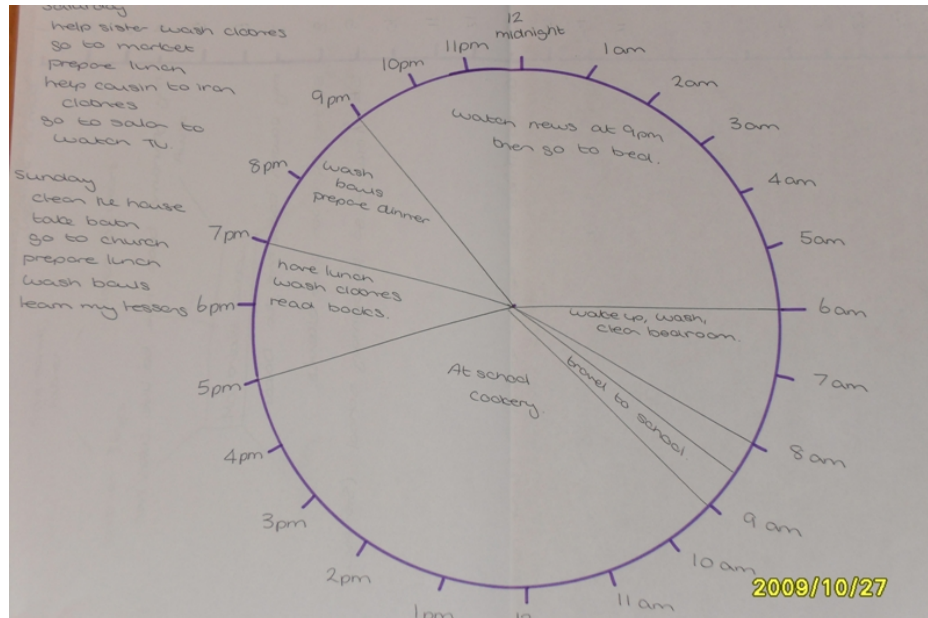 Saturday
help sister wash clothes
go to market
prepare lunch
help cousin to iron
clothes
go to salon to
watch TV.
Sunday
clean the house
take bath
go to church
prepare lunch
wash bowls
learn my lessons
12
midnight
1am
2am
3am
4am
5am
6am
7am
8am
9am
10am
11am
12
1pm
2pm
3pm
4pm
5pm
6pm
7pm
8pm
9pm
10pm
11pm
watch news at 9pm
then go to bed.
wake up, wash,
clean bedroom.
travel to school.
At school
cookery
have lunch
wash clothes
read books.
wash
bowls
prepare dinner
2009/10/27